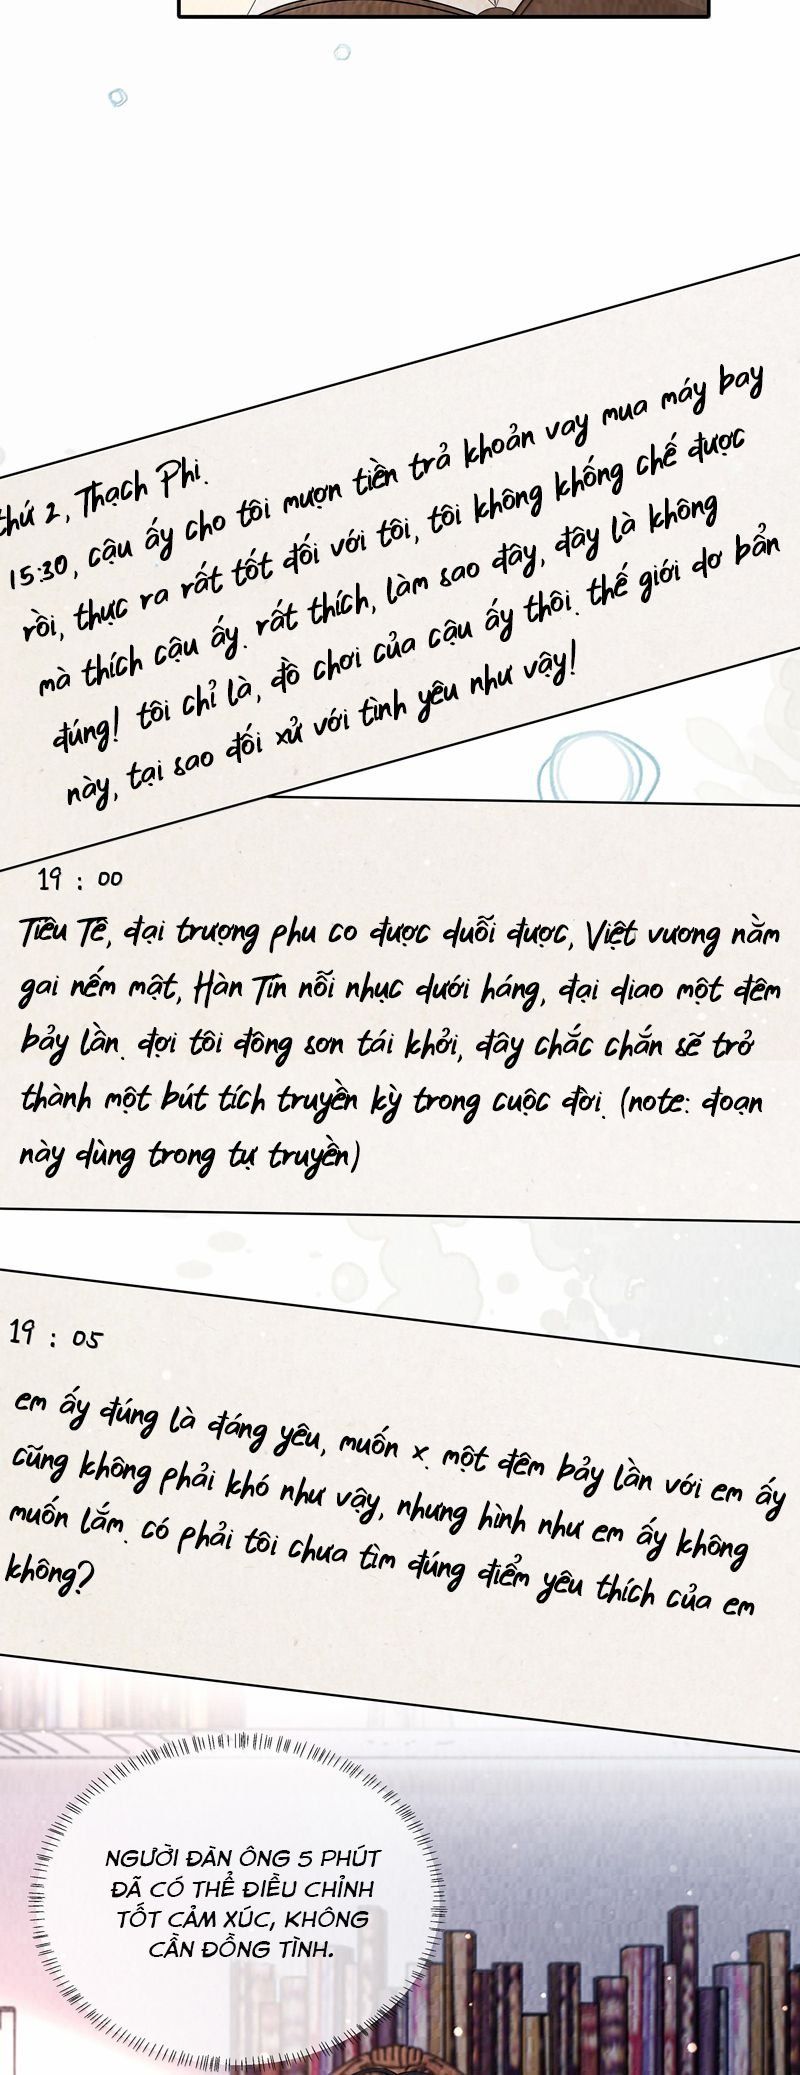 thứ 2, Thạch Phi.
15:30, cậu ấy cho tôi mượn tiền trả khoản vay mua máy bay
rồi, thực ra rất tốt đối với tôi, tôi không khống chế được
mà thích cậu ấy. rất thích, làm sao đây, đây là không
đúng! tôi chỉ là, đồ chơi của cậu ấy thôi. thế giới dơ bẩn
này, tại sao đối xử với tình yêu như vậy!
19 : 00
Tiêu Tê, đại trượng phu co được duỗi được, Việt vương nằm
gai nếm mật, Hàn Tín nỗi nhục dưới háng, đại diao một đêm
bảy lần. đợi tôi đông sơn tái khởi, đây chắc chắn sẽ trở
thành một bút tích truyền kỳ trong cuộc đời. (note: đoạn
này dùng trong tự truyền)
19 : 05
em ấy đúng là đáng yêu, muốn x. một đêm bảy lần với em ấy
cũng không phải khó như vậy, nhưng hình như em ấy không
muốn lắm. có phải tôi chưa tìm đúng điểm yêu thích của em
không?
NGƯỜI ĐÀN ÔNG 5 PHÚT
ĐÃ CÓ THỂ ĐIỀU CHỈNH
TỐT CẢM XÚC, KHÔNG
CẦN ĐỒNG TÌNH.